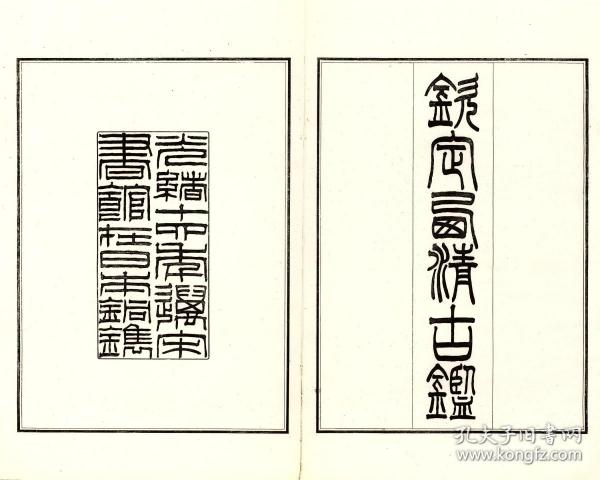 欽定西清古鑑
光緒十四年邁宋
書館日本銅鐫
孔夫子旧书网
www.kongfz.com